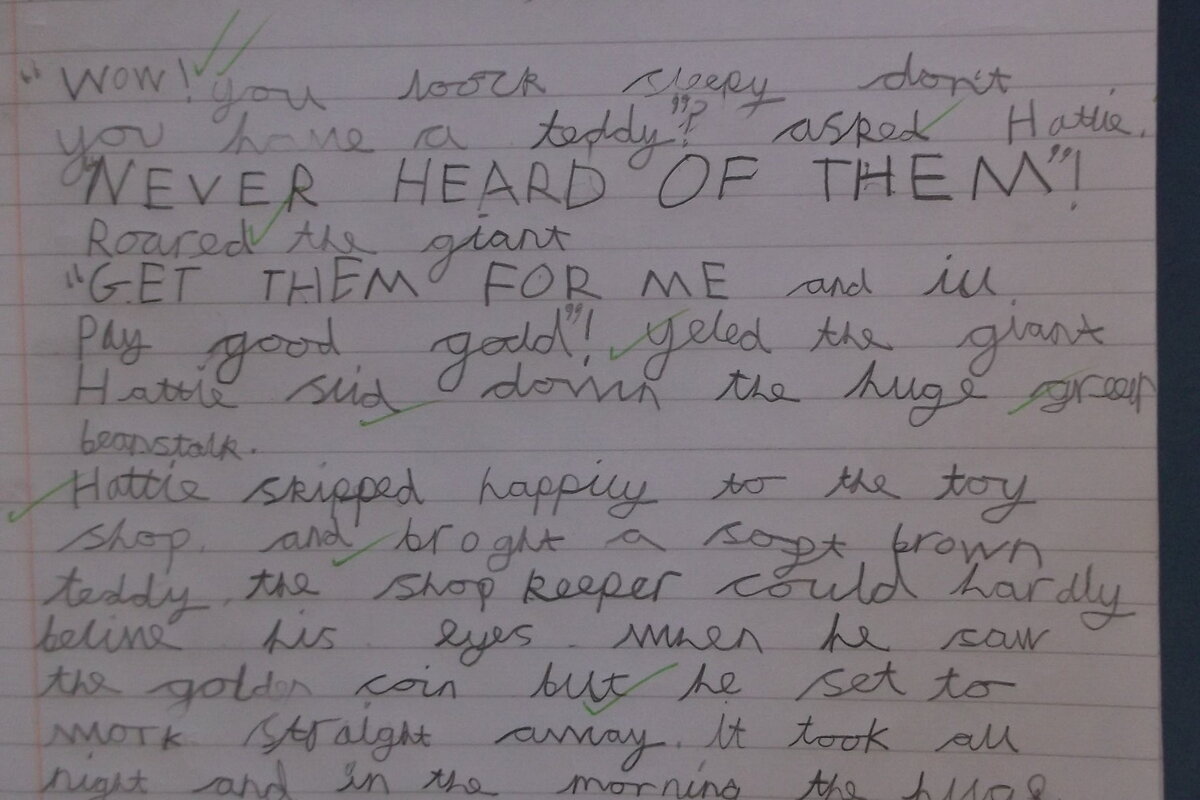 "Wow! you loock sleepy don't
you have a teddy"? asked Hattie.
"NEVER HEARD OF THEM"!
Roared the giant
"GET THEM FOR ME and ill
Pay good godd"! yeled the giant
Hattie slid down the huge green
beanstalk.
Hattie skipped happily to the toy
shop. and broght a sopt brown
teddy. the shop keeper could hardly
belive his eyes when he saw
the golden coin but he set to
work straight away. It took all
night and in the morning the huge